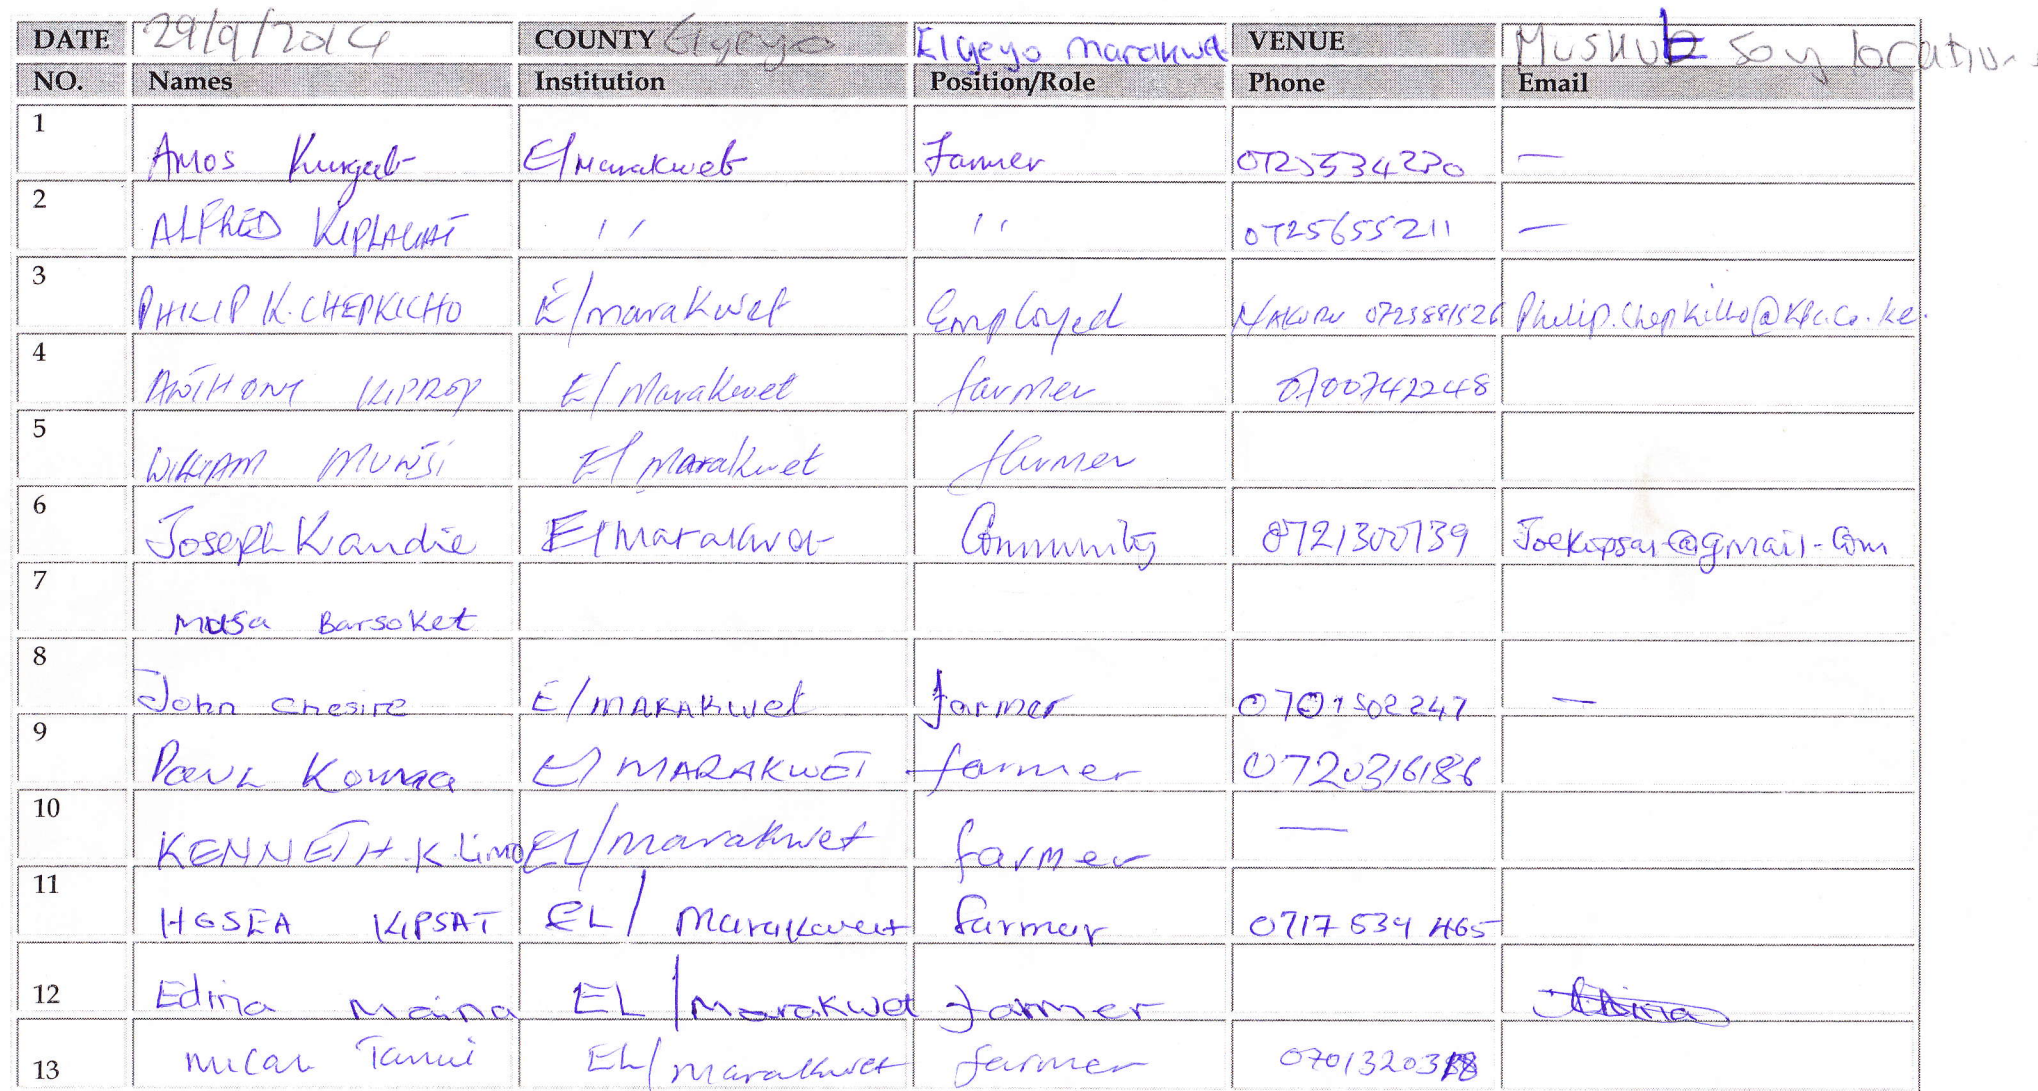 DATE 29/9/2014 COUNTY Elgeyo Elgeyo Marakwet VENUE Soy location
NO. Names Institution Position/Role Phone Email
1 Amos Kurgat E/Marakwet Farmer 0723534230 —
2 ALFRED KIPLAGAT '' '' 0725655211 —
3 PHILIP K. CHEPKICHO E/Marakwet Employed NAKURU 0723881526
4 ANTHONY KIPROP E/Marakwet farmer 0700742248
5 WILLIAM E/Marakwet farmer
6 Joseph Kandie E/Marakwet Community 0721300739
7 Musa Barsoket
8 John Chesire E/MARAKWet farmer 0701502247 —
9 Paul E/MARAKWET farmer 0720316186
10 KENNETH.K.Limo EL/Marakwet farmer —
11 HOSEA KIPSAT EL/Marakwet farmer 0717 534 465
12 Edina Maina EL/Marakwet farmer
13 EL/marakwet farmer